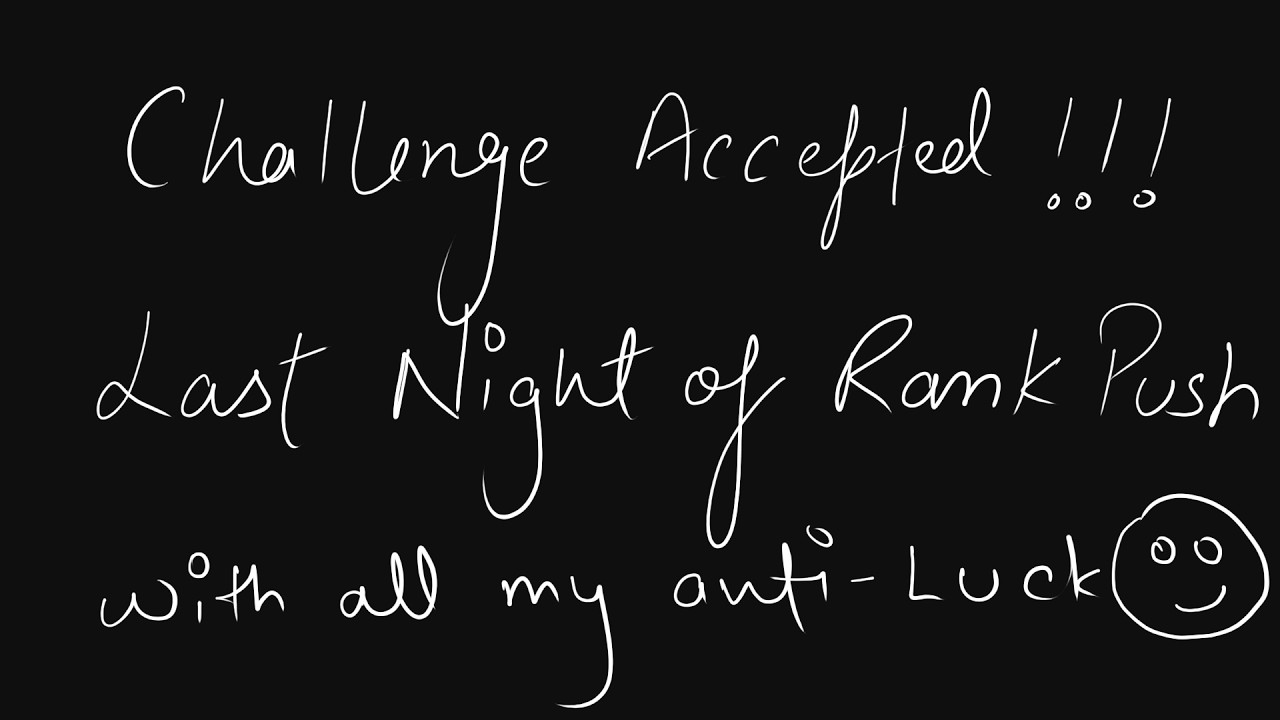 Challenge Accepted !!!
Last Night of Rank Push
with all my anti-Luck